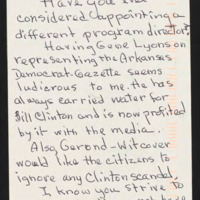 Have you ever
considered appointing a
different program director?
Having Gene Lyons on
representing the Arkansas
Democrat-Gazette seems
ludicrous to me. He has
always carried water for
Bill Clinton and is now profited
by it with the media.
Also Gerond-Witcover
would like the citizens to
ignore any Clinton scandal.
I know you strive to